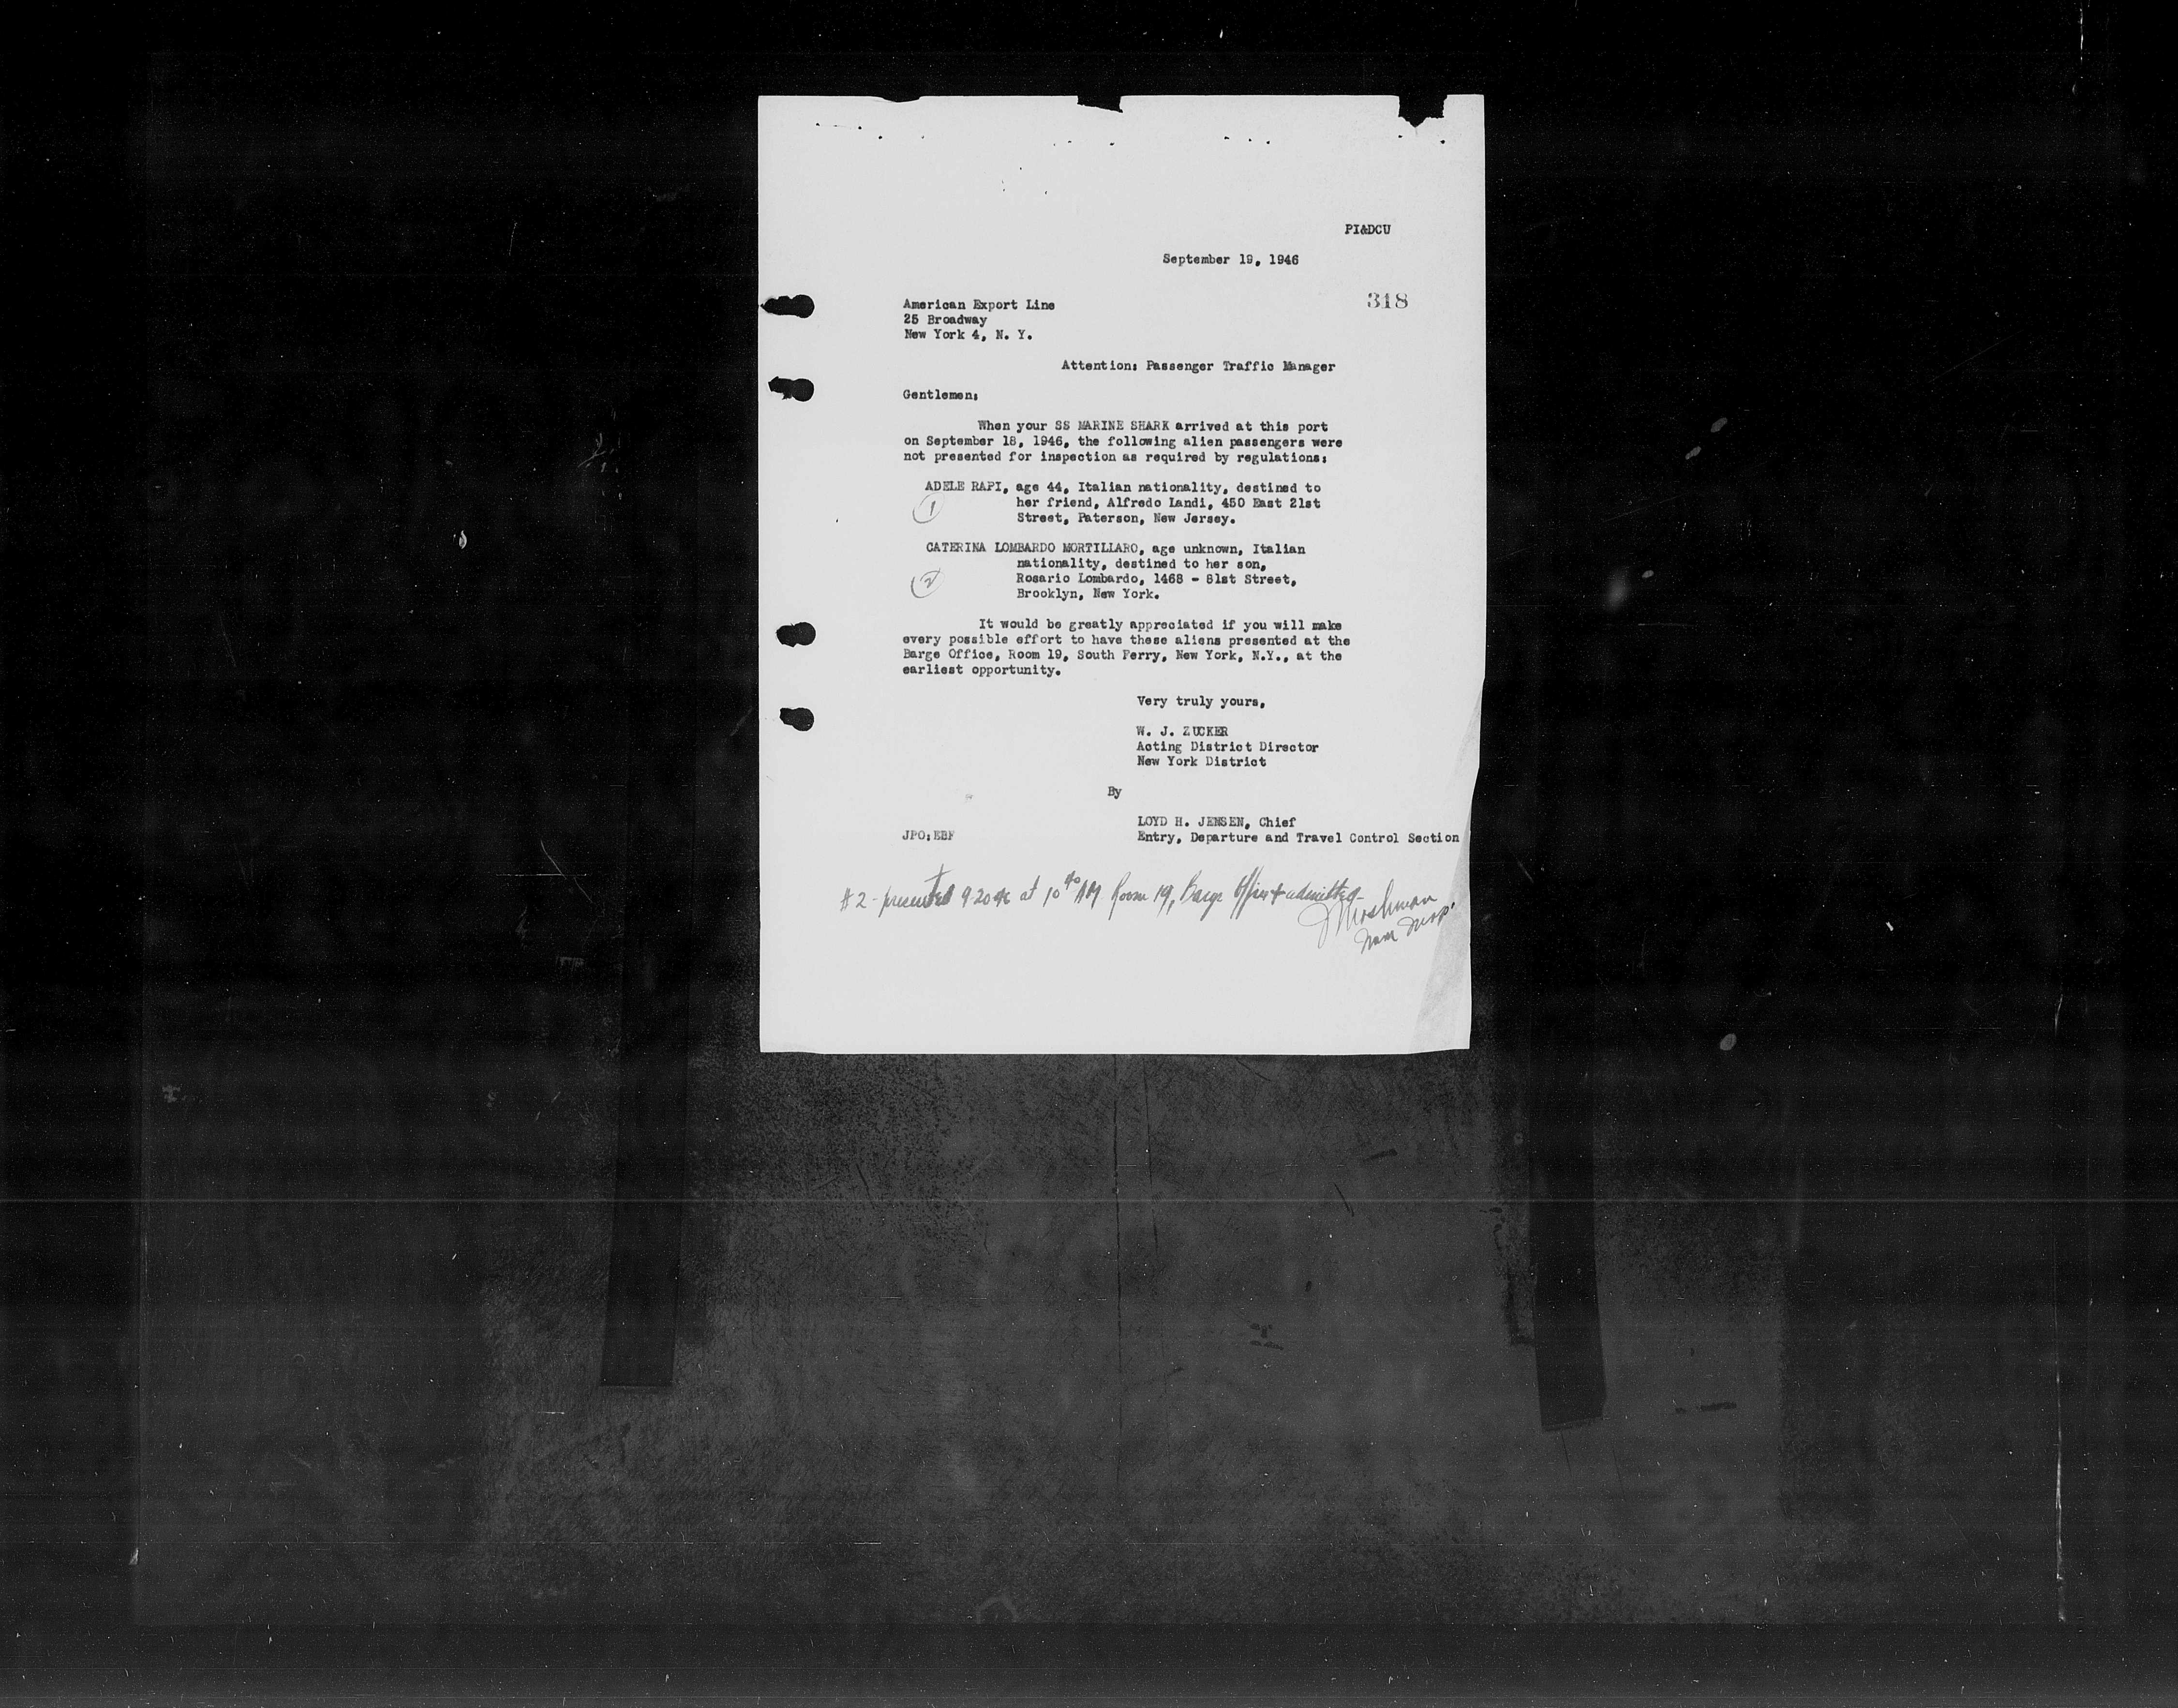 PI&DCU
September 19, 1946
318
American Export Line
25 Broadway
New York 4, N. Y.
Attention: Passenger Traffic Manager
Gentlemen:
When your SS MARINE SHARK arrived at this port
on September 18, 1946, the following alien passengers were
not presented for inspection as required by regulations:
ADELE RAPI, age 44, Italian nationality, destined to
her friend, Alfredo Landi, 450 East 21st
Street, Paterson, New Jersey.
1
CATERINA LOMBARDO MORTILLARO, age unknown, Italian
nationality, destined to her son,
Rosario Lombardo, 1468 - 81st Street,
Brooklyn, New York.
2
It would be greatly appreciated if you will make
every possible effort to have these aliens presented at the
Barge Office, Room 19, South Ferry, New York, N.Y., at the
earliest opportunity.
Very truly yours,
W. J. ZUCKER
Acting District Director
New York District
By
LOYD H. JENSEN, Chief
JPO:EBF Entry, Departure and Travel Control Section
#2 - presented 9-20-46 at 10 40 AM Room 19, Barge Office & admitted
Insp.